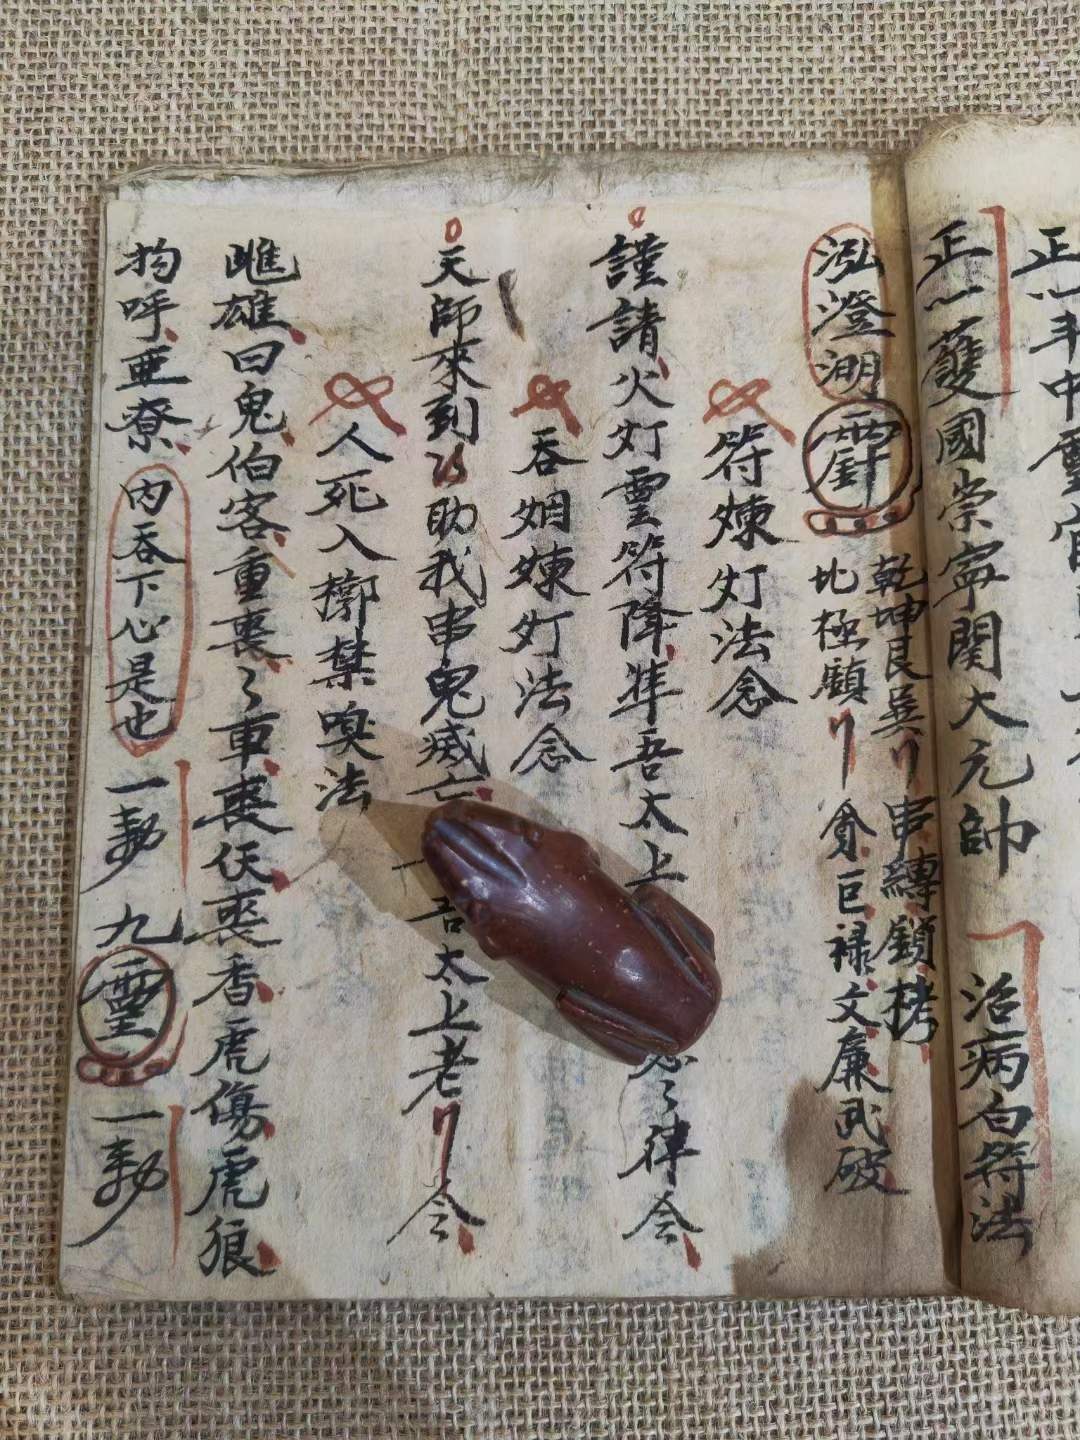 正一
正一䕶國崇寧関大元帥
治病白符法
泓澄湖
乾坤艮巽 串縛鎖拷
北極顯 貪巨禄文廉武破
符煉灯法念
謹請火灯雲符降 準吾太上 律令
吞烟煉灯法念
天師來到 助我串鬼滅亡 吾太上老 令
人死入槨禁嗅法
雌雄曰鬼伯客重喪〻車喪伏喪香虎傷虎狼
拘呼亜寮 内吞下心是也 一勅 九靈 一勅